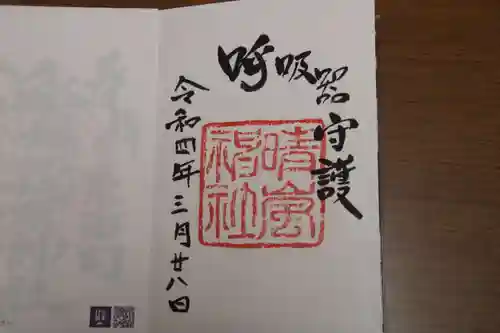 呼吸器守護
晴嵐神社
令和四年三月廿八日